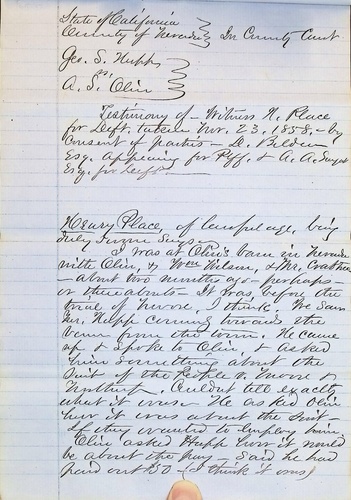 State of California
County of Nevada } In County Court
Geo. S. Hupp
vs.
A. S. Olin
Testimony of Witness H. Place
for Deft. taken Nov. 23, 1858, by
Consent of parties - D. Belden
Esq. appearing for Plff. & A. A.
Esq. for Deft
Henry Place, of lawful age, being
duly sworn says.
I was at Olin's barn in Nevada
with Olin, & Wm Wilson, & Mr.
- about two months ago - perhaps -
or thereabouts - It was before the
trial of Moore, I think. We saw
Mr. Hupp coming towards the
barn from the town. He came
up & spoke to Olin, & asked
him something about the
Suit of the People v. Moore &
Couldnt tell exactly
what it was. He asked Olin
how it was about the Suit.
If they wanted to employ him
Olin asked Hupp how it would
be about the pay - Said he had
paid out 50 - (I think it was)